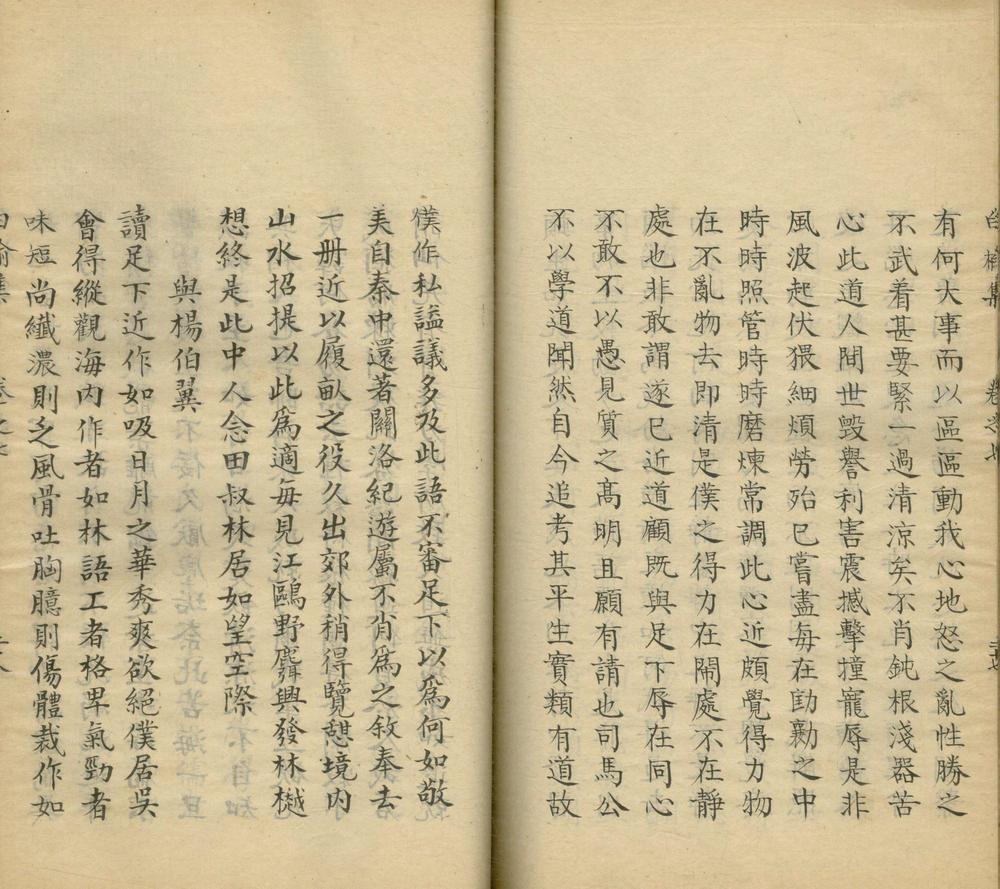 白榆集 卷之七
有何大事而以區區動我心地怒之亂性勝之
不武着甚要緊一過清涼矣不肖鈍根淺器苦
心此道人間世毀譽利害震撼擊撞寵辱是非
風波起伏猥細煩勞殆已嘗盡每在勛勷之中
時時照管時時磨煉常調此心近頗覺得力物
在不亂物去即清是僕之得力在鬧處不在靜
處也非敢謂遂已近道顧既與足下辱在同心
不敢不以愚見質之高明且願有請也司馬公
不以學道聞然自今追考其平生實類有道故
僕作私謚議多及此語不審足下以爲何如敬
美自秦中還著關洛紀遊屬不肖爲之敘奉去
一册近以履畝之役久出郊外稍得覽憩境内
山水招提以此爲適每見江鷗野麏興發林樾
想終是此中人念田叔林居如望空際
與楊伯翼
讀足下近作如吸日月之華秀爽欲絕僕居吳
會得縱觀海内作者如林語工者格卑氣勁者
味短尚纖濃則乏風骨吐胸臆則傷體裁作如
白榆集